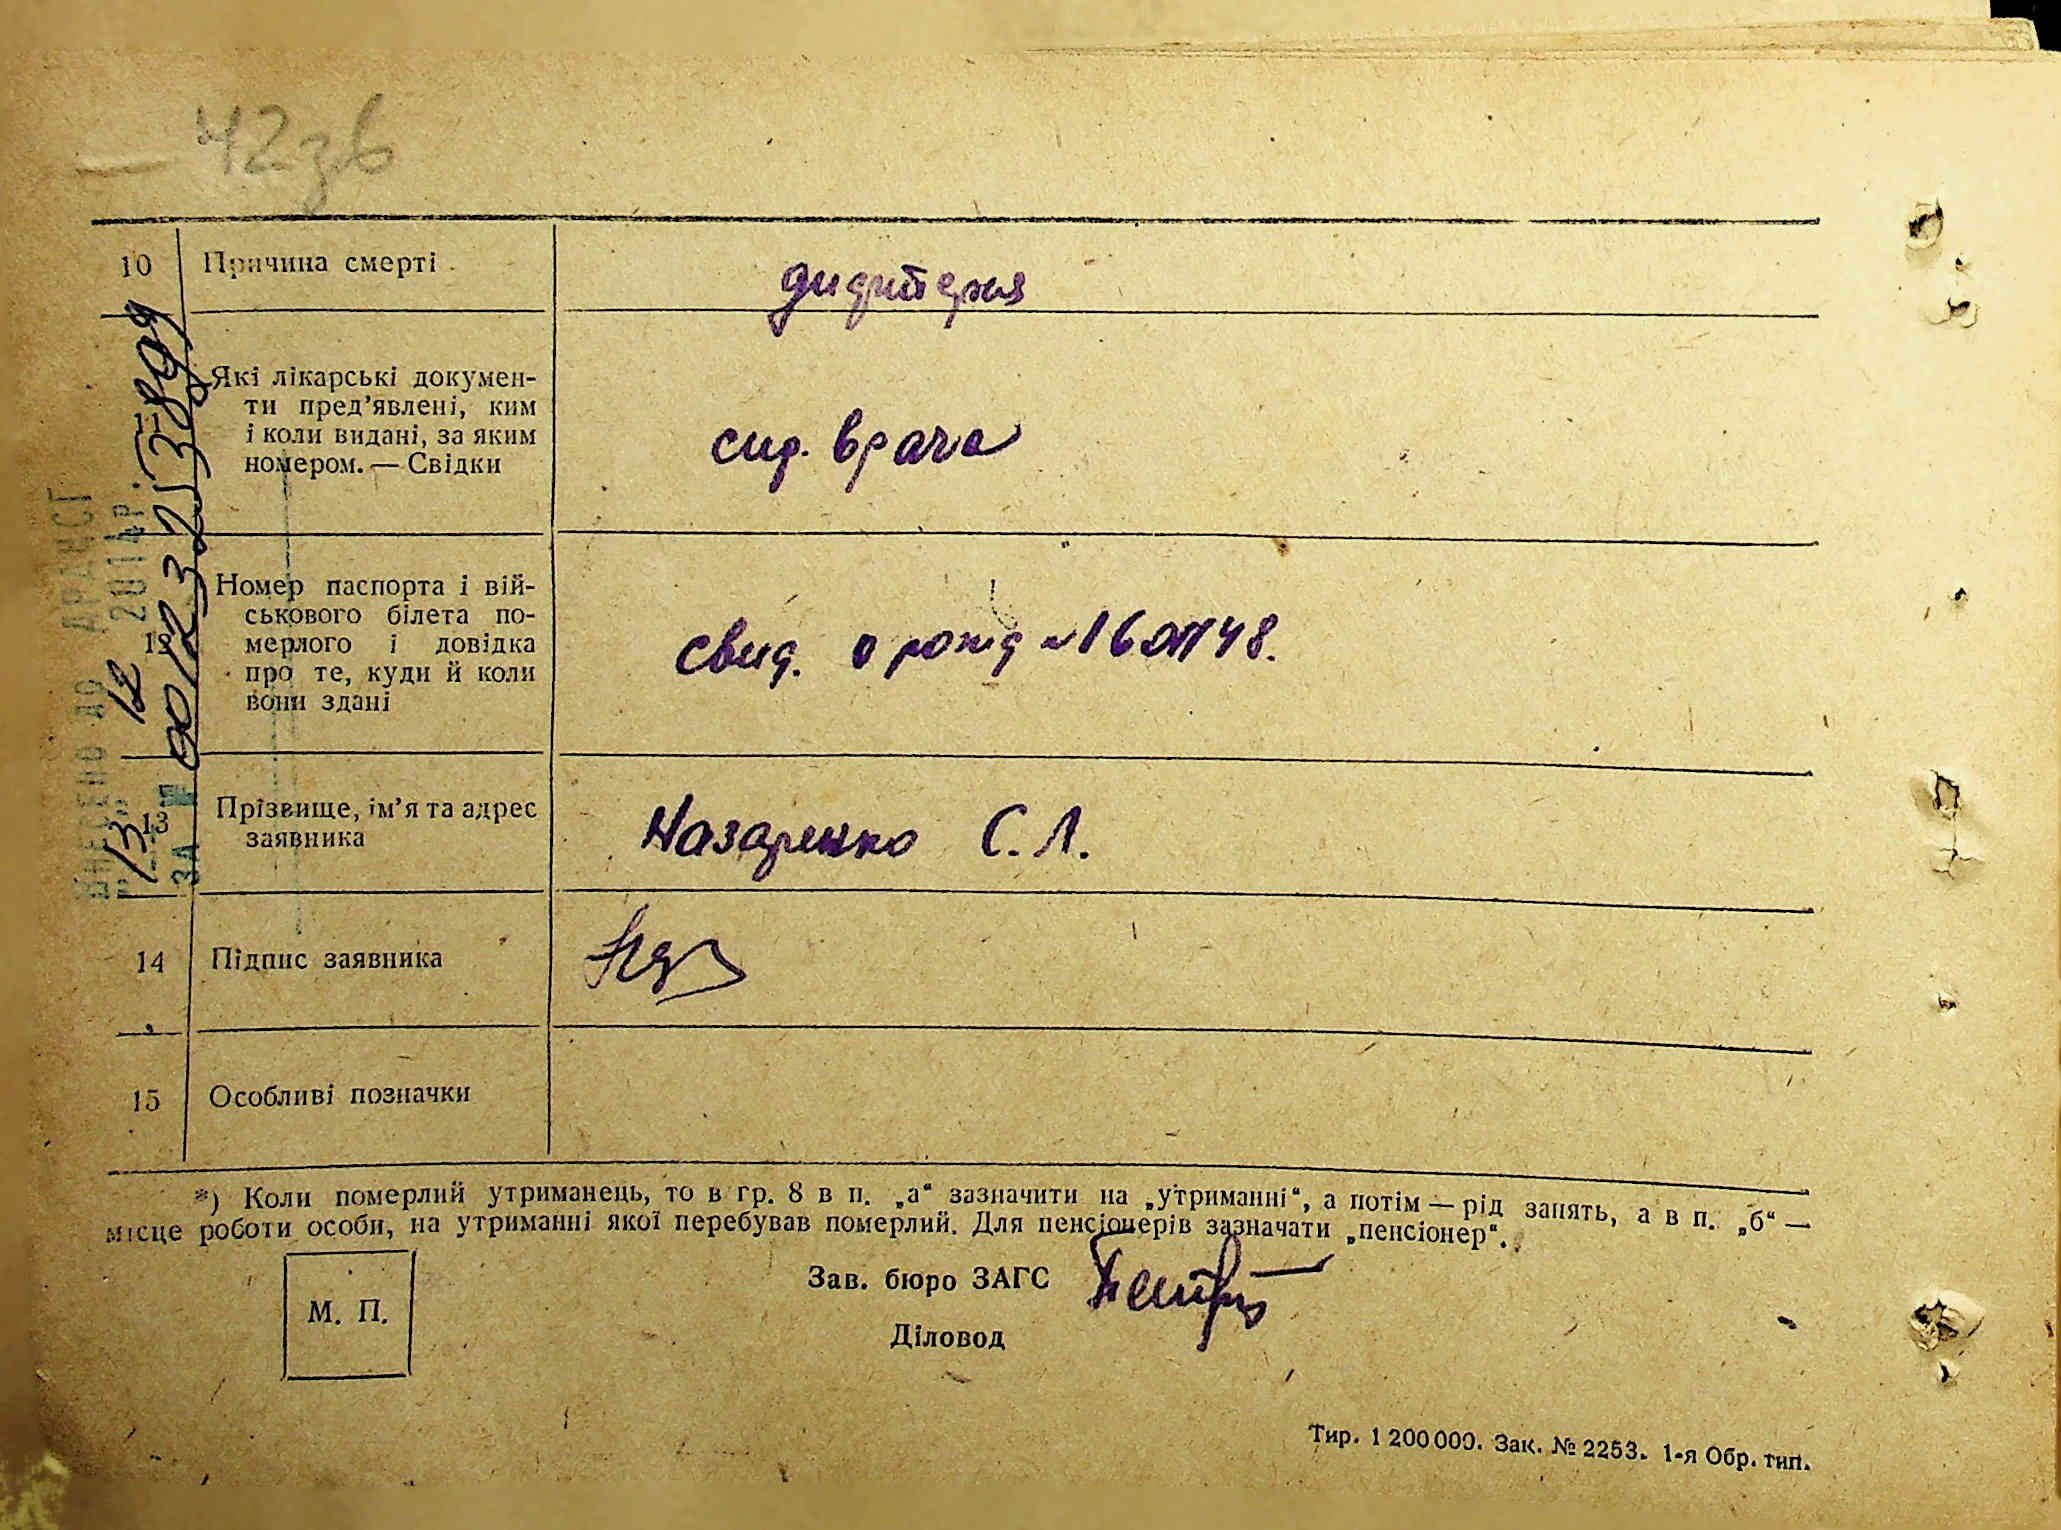 42 зв
10 Причина смерті дифтерия
11 Які лікарські докумен-
ти пред’явлені, ким
і коли видані, за яким
номером. — Свідки
врача
12 Номер паспорта і вій-
ськового білета по-
мерлого і довідка
про те, куди й коли
вони здані
свид. о рожд
13 Прізвище, ім’я та адрес
заявника
Назаренко С. Л.
14 Підпис заявника
15 Особливі позначки
*) Коли померлий утриманець, то в гр. 8 в п. „а“ зазначити на „утриманні“, а потім — рід занять, а в п. „б“ —
місце роботи особи, на утриманні якої перебував померлий. Для пенсіонерів зазначати „пенсіонер“.
М. П.
Зав. бюро ЗАГС
Діловод
Тир. 1 200 000. Зак. № 2253. 1-я Обр. тип.
ВНЕСЕНО ДО ДРАЦСГ
13 12 201 Р.
ЗА № 00123251389